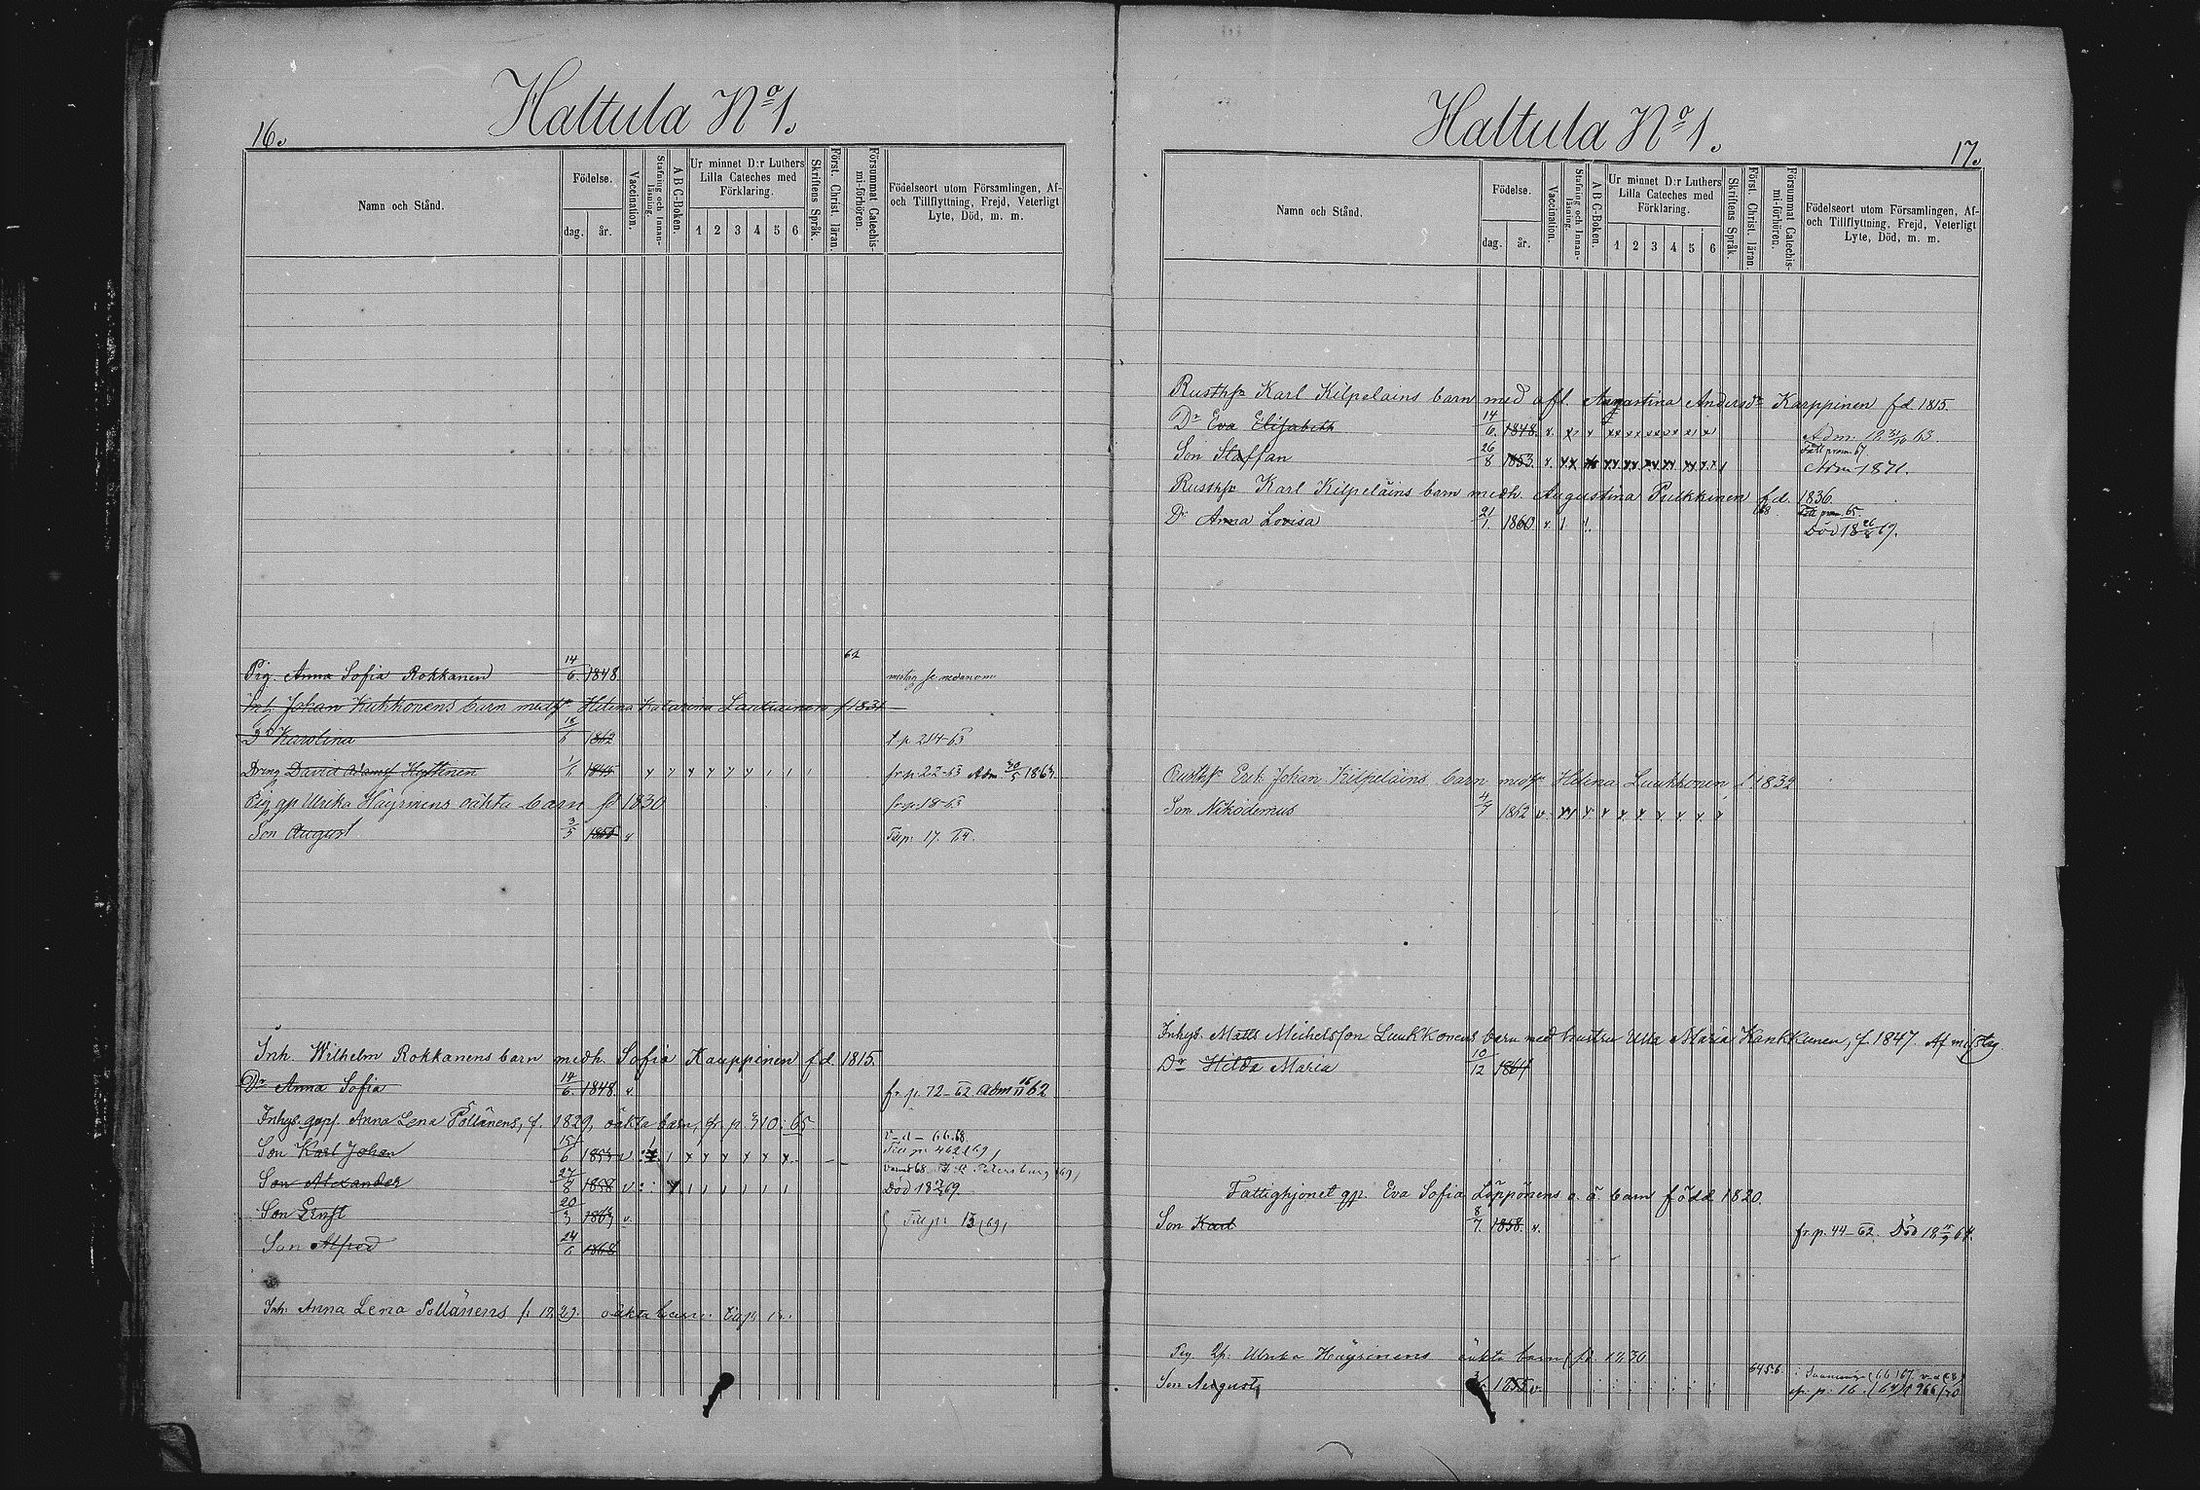 16.
Hattula No 1.
Namn och Stånd.
Födelse.
dag.
år.
Vaccination.
Stafning och Innan-läsning.
A B C-Boken.
Ur minnet D:r Luthers Lilla Cateches med Förklaring.
1 2 3 4 5 6
Skriftens Språk.
Först. Christ. läran.
Försummat Catechis-mi-förhören.
Födelseort utom Församlingen, Af-
och Tillflyttning, Frejd, Veterligt
Lyte, Död, m. m.
62
Pig. Anna Sofia Rokkanen 14/6. 1848.
Inh. Johan Kukkonens barn med h. Helena Katarina
Dr Karolina 18/6 1862
Dreng David Adamsf Hyttinen 1845 fr p. 22-63 Adm 30/5 1863
Pig gp Ulrika Häyrinens oäkta barn fd 1830 fr p. 18-63
Son August 3/5 v Till p. 17. 64.
Inh. Wilhelm Rokkanens barn medh. Sofia Kauppinen fd. 1815.
Dr Anna Sofia 14/6. 1848. v. fr p. 72-62 Adm 62
Inhys. Anna Lena Pöllänens, f. 1829, oäkta barn, fr p. 310. 65
Son Karl Johan 15/6 1853 v Till p. 462 (69)
Son Alexander 27/8 1858 v Död 69.
Son Ernst 20/3 1863 v. Till p. 13 (69)
Son Alfred 24/6 1868
Inh. Anna Lena Pöllänens f. 1829. oäkta barn.
Hattula No 1.
17.
Namn och Stånd.
Födelse.
dag.
år.
Vaccination.
Stafning och Innan-läsning.
A B C-Boken.
Ur minnet D:r Luthers Lilla Cateches med Förklaring.
1 2 3 4 5 6
Skriftens Språk.
Först. Christ. läran.
Försummat Catechis-mi-förhören.
Födelseort utom Församlingen, Af-
och Tillflyttning, Frejd, Veterligt
Lyte, Död, m. m.
Rusth Karl Kilpeläins barn med afl. Augustina Andersdr Karppinen fd. 1815.
Dr Eva Elisabeth 14/6. 1848. v. Adm. 63.
Son Staffan 26/8 1853. v. Adm 1871.
Rusth Karl Kilpeläins barn medh. Augustina Pulkkinen fd. 1836.
Dr Anna Lovisa 21/1. 1860 v. Död 18 26/8 67.
Rusth Erik Johan Kilpeläins barn med h Helena Luukkonen f. 1832
Son Nikodemus 4/7 1862 v
Inhys. Matts Michelsson Luukkonens barn med hustru Ulla Maria Kankkunen, f 1847. Af misstag.
Dr Hilda Maria 10/12 1864
Fattighjonet gp. Eva Sofia Löppönens o. ä. barn född 1820.
Son Karl 8/7. 1858. v. fr. p. 44-62. Död
Pig gp. Ulrika Häyrinens oäkta barn fd. 1830
Son August 1855 v.